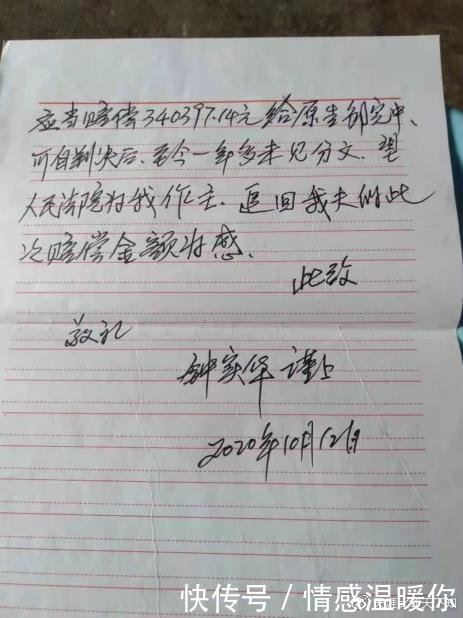 应当赔偿340397.14元给原告邹定中、
可自判决后、至今一年多未见分文、望
人民法院为我作主、追回我夫的此
次赔偿金额为感、
此致
敬礼
钟实华 谨上
2020年10月12日
快传号 / 情感温暖你